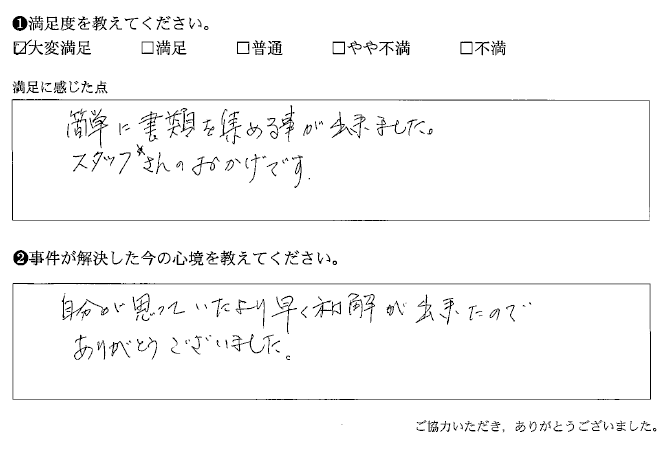 ❶満足度を教えてください。
☑大変満足 □満足 □普通 □やや不満 □不満
満足に感じた点
簡単に書類を集める事が出来ました。
スタッフさんのおかげです.
❷事件が解決した今の心境を教えてください。
自分が思っていたより早く和解が出来たので
ありがとうございました。
ご協力いただき，ありがとうございました。